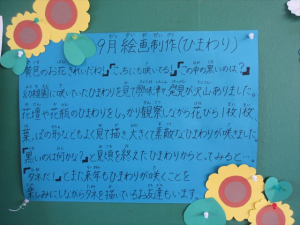 9月絵画制作(ひまわり)
「黄色のお花きれいだね」「こっちにも咲いてる」「この中の黒いのは?」
幼稚園に咲いていたひまわりを見て興味津々発見が沢山ありました。
花壇や花瓶のひまわりをしっかり観察しながら花びら1枚1枚、
葉っぱの形などもよく見て描き大きくて素敵なひまわりが咲きました。
「黒いのは何かな?」と見頃を終えたひまわりからとってみると…
「タネだ!」とまた来年もひまわりが咲くことを
楽しみにしながらタネを描いているお友達もいます。